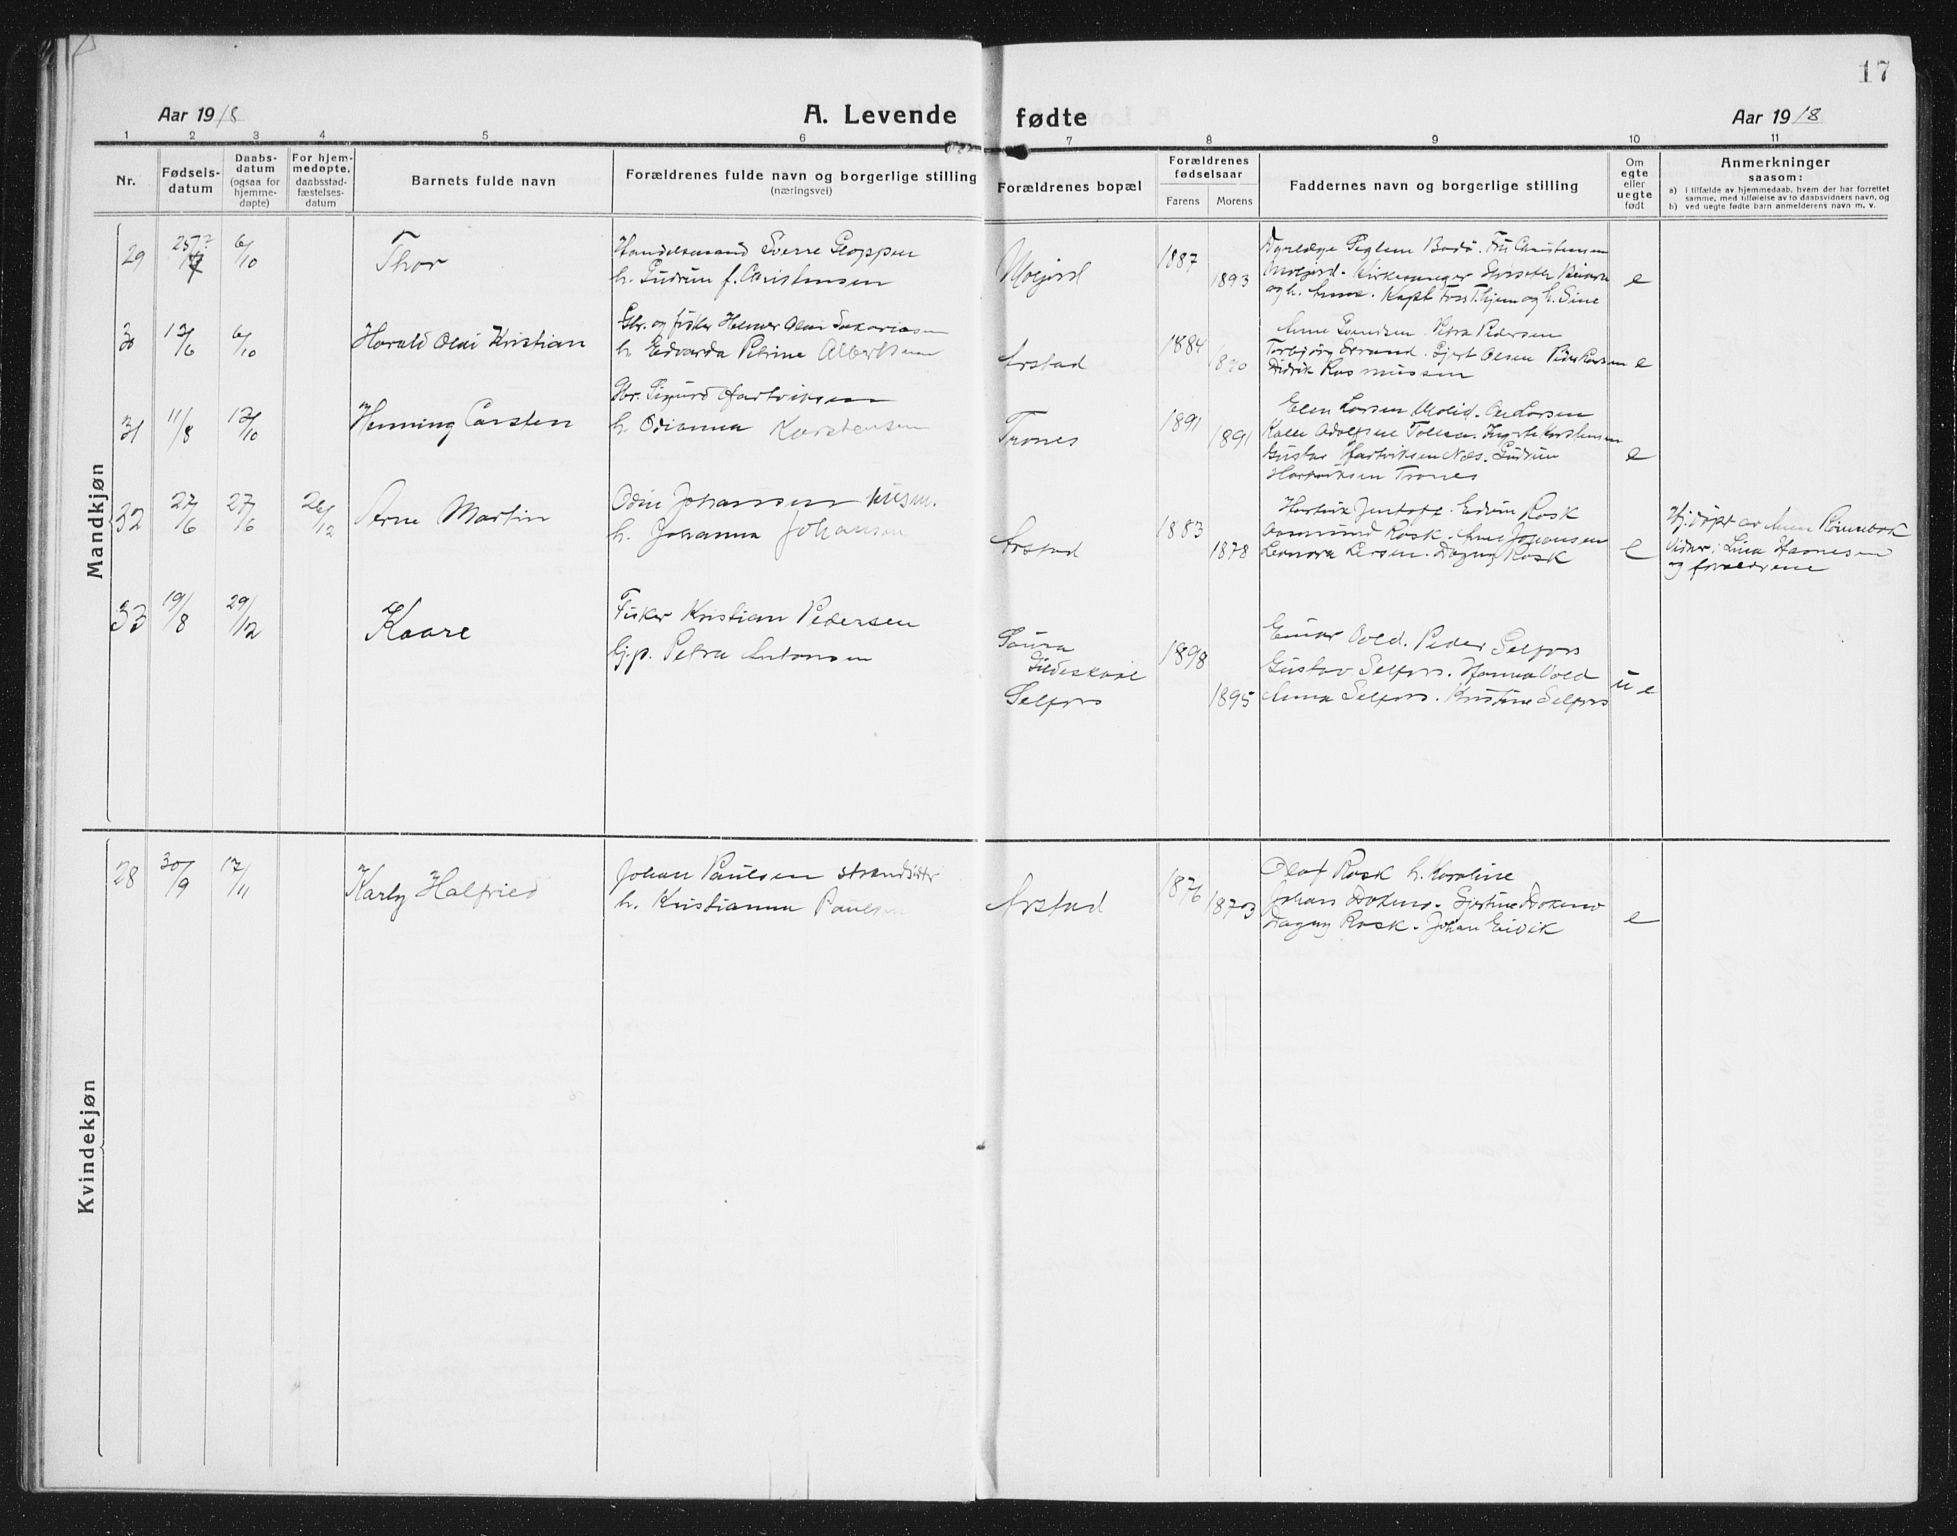 17
Aar 1918
A. Levende fødte
Aar 1918
1 2 3 4 5 6 7 8 9 10 11
Nr.
Fødsels-
datum
Daabs-
datum
(ogsaa for
hjemme-
døpte)
For hjem-
medøpte,
daabsstad-
fæstelses-
datum
Barnets fulde navn
Forældrenes fulde navn og borgerlige stilling
(næringsvei)
Forældrenes bopæl
Forældrenes
fødselsaar
Farens Morens
Faddernes navn og borgerlige stilling
Om
egte
eller
uegte
født
Anmerkninger
saasom:
a) i tilfælde av hjemmedaab, hvem der har forrettet
samme, med tilføielse av to daabsvidners navn, og
b) ved uegte fødte barn anmelderens navn m. v.
Mandkjøn
29 6/10 Thor
Handelsmand Sverre Gloppen
h. Gudrun f. Christensen
Moldjord
1887 1893
Dyrlæge Bodø. Fru Christensen
Moldjord. Kirkesanger Beiarn
og h. Anne. Kapt. og h. Sine
e
30 12/6 6/10 Harald Olai Kristian
Gbr. og fisker Helmer Olai Sakariasen
h. Edvarda Petrine Albertsen
Arstad
1884 1890
Anne Svendsen. Petra Pedersen
Torbjørg Strand. Gjert Olsen
Didrik Rasmussen
e
31 11/8 13/10 Henning Carsten
Gbr. Sigurd Hartviksen
h. Odianna Karstensen
Trones
1891 1891
Elen Larsen Molid. Ole Larsen
Kalle Adolfsen
Gustav Hartviksen Næs. Gudrun
Hartviksen Trones
e
32 27/6 27/6 26/12 Arne Martin
Odin Johansen husm.
h. Johanna Johansen
Arstad
1883 1878
Hartvik Jentoft. Edvin Rosk
Aasmund Rosk. Arne Johansen
Leonora Larsen. Dagny Rosk
e
Hj. døpt av Anna Rønnebæk
Vidner: Lina Hansen
og forældrene
33 19/8 29/12 Kaare
Fisker Kristian Pedersen
Gj.p. Petra Antonsen
Saura
Gildeskaal
Selfors
1898 1895
Einar Vold. Peder Selfors
Gustav Selfors. Hanna Vold
Anna Selfors. Kristine Selfors
u e
Kvindekjøn
28 30/9 17/11 Karly Halfried
Johan Paulsen strandsitter
h. Kristianna Paulsen
Arstad
1876 1873
Olaf Rosk h. Karoline
Johan Dokmo. Gjertine Dokmo
Dagny Rosk. Johan Eivik
e